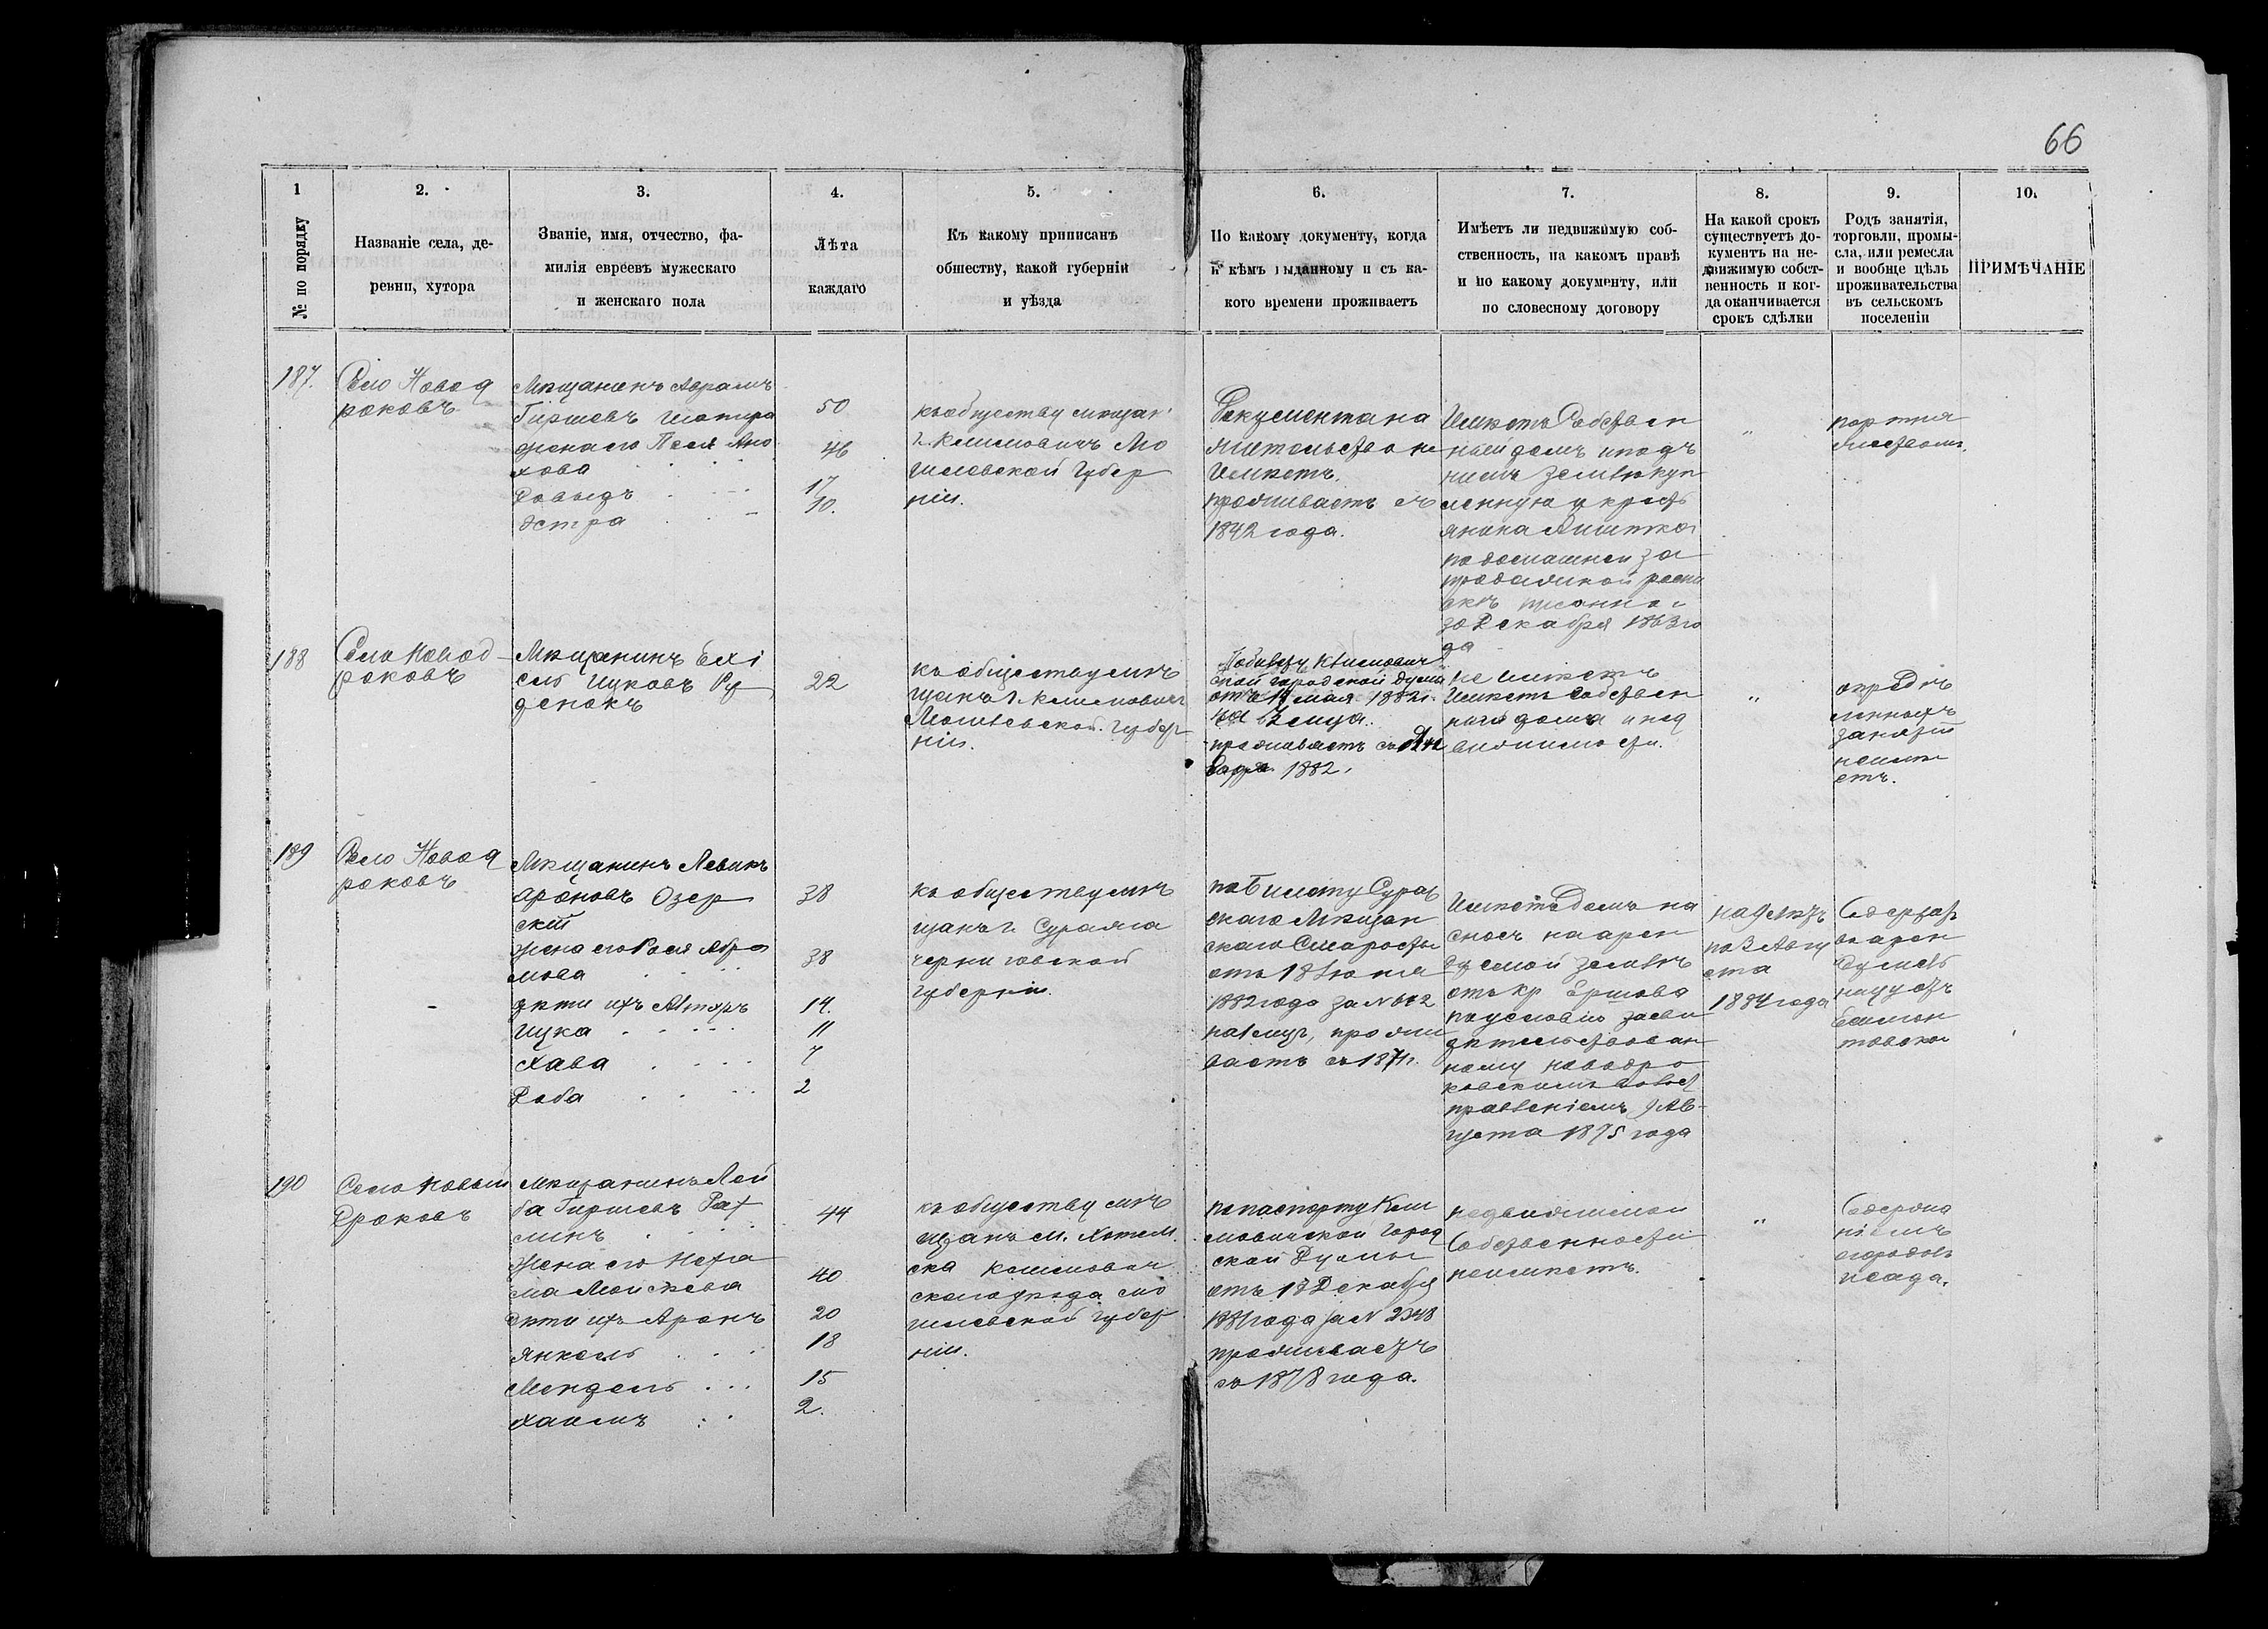 66
1
№ по порядку
2.
Названіе села, де-
ревни, хутора
3.
Званіе, имя, отчество, фа-
милія евреевъ мужескаго
и женскаго пола
4.
Лѣта
каждаго
5.
Къ какому приписанъ
обществу, какой губерніи
и уѣзда
6.
По какому документу, когда
и кѣмъ выданному и съ ка-
кого времени проживаетъ
7.
Имѣетъ ли недвижимую соб-
ственность, на какомъ правѣ
и по какому документу, или
по словесному договору
8.
На какой срокъ
существуетъ до-
кументъ на не-
движимую собст-
венность и ког-
да оканчивается
срокъ сдѣлки
9.
Родъ занятія,
торговли, промы-
сла, или ремесла
и вообще цѣль
проживательства
въ сельскомъ
поселеніи
10.
ПРИМѢЧАНІЕ
187.
Село Новод
роковъ
Мѣщанинъ Абрамъ
Гиршевъ
жена его Песя
Довыдъ
Эстра
50
46
17
10.
къ обществу мѣщан
г. Климовичъ Мо
гилевской Губер
ніи.
Документа на
жительство не
Имѣетъ.
проживаетъ съ
1842 года.
Имѣетъ Собствен
ный домъ и подъ
нимъ землю куп
ленную у кресть
янина
по домашней за
продажной роспи
скѣ писанной
30 Декабря 1863 го
да
"
портня
жествомъ.
188
Село Новод-
роковъ
Мѣщанинъ Ехі
ель Ицковъ Ру
денокъ
22
къ обществу мѣ
щанъ г. Климовичъ
Могилевской Губер
ніи.
По билету Климович
ской городской думы
отъ 14 мая 1882 г.
проживаетъ съ
1882.
не имѣетъ
Имѣетъ Собствен
наго дома и нед
вижимости.
"
опредѣ
ленныхъ
занятій
неимѣ
етъ.
189
Село Новод
роковъ
Мѣщанинъ Левикъ
Ароновъ Озер
скій
жена его Рося Абра
мова
дѣти ихъ
Ицка
Хава
Доба
38
38
14.
11
7
2
къ обществу мѣ
щанъ г. Суража
черниговской
губерніи.
по Билету Сураж
скаго Мѣщан
скаго Старосты
отъ 18 Іюня
1882 года за N 662
прожи
ваетъ съ 1871 г.
Имѣетъ домъ на
сносъ на арен
дуемой землѣ
отъ кр Ершова
по условію засви
дѣтельствован
ному новодро
ковскимъ волост
правленіемъ 9 Ав-
густа 1875 года
на 9 лѣтъ
по 3 Авгу
ста
1884 года
Содержат
190
Село Новый
Дроковъ
Мѣщанинъ Лей
ба Гиршевъ Рах
линъ
Жена его Неха
ма Моисѣева
дѣти ихъ Аронъ
Янкель
Мендель
Хаимъ
44
40
20
18
15
2.
къ обществу мѣ
щанъ м. Хотим
ска Климович
скаго уѣзда Мо
гилевской губер
ніи.
по паспорту Кли
мовичской город
ской Думы
отъ 18 Декабря
1881 года за N 2348
проживаетъ
съ 1878 года.
недвижимой
Собственности
неимѣетъ.
"
Содержа
ніемъ
огородовъ
и сада.